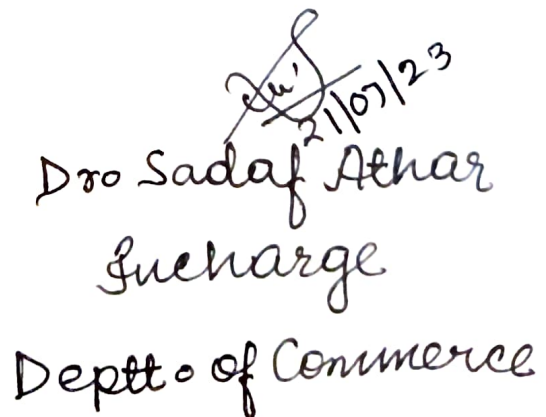 21/07/23
Dr. Sadaf Athar
Incharge
Deptt. of Commerce